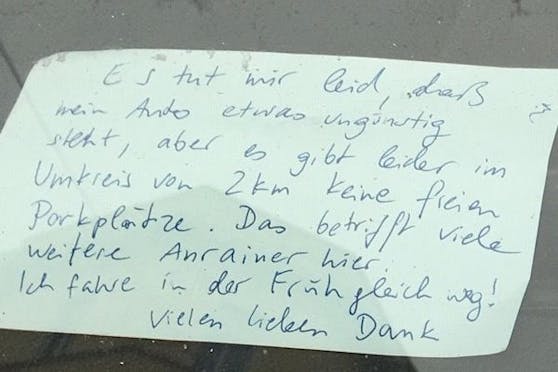 Es tut mir leid, daß
mein Auto etwas ungünstig
steht, aber es gibt leider im
Umkreis von 2km keine freien
Parkplätze. Das betrifft viele
weitere Anrainer hier.
Ich fahre in der Früh gleich weg!
Vielen lieben Dank